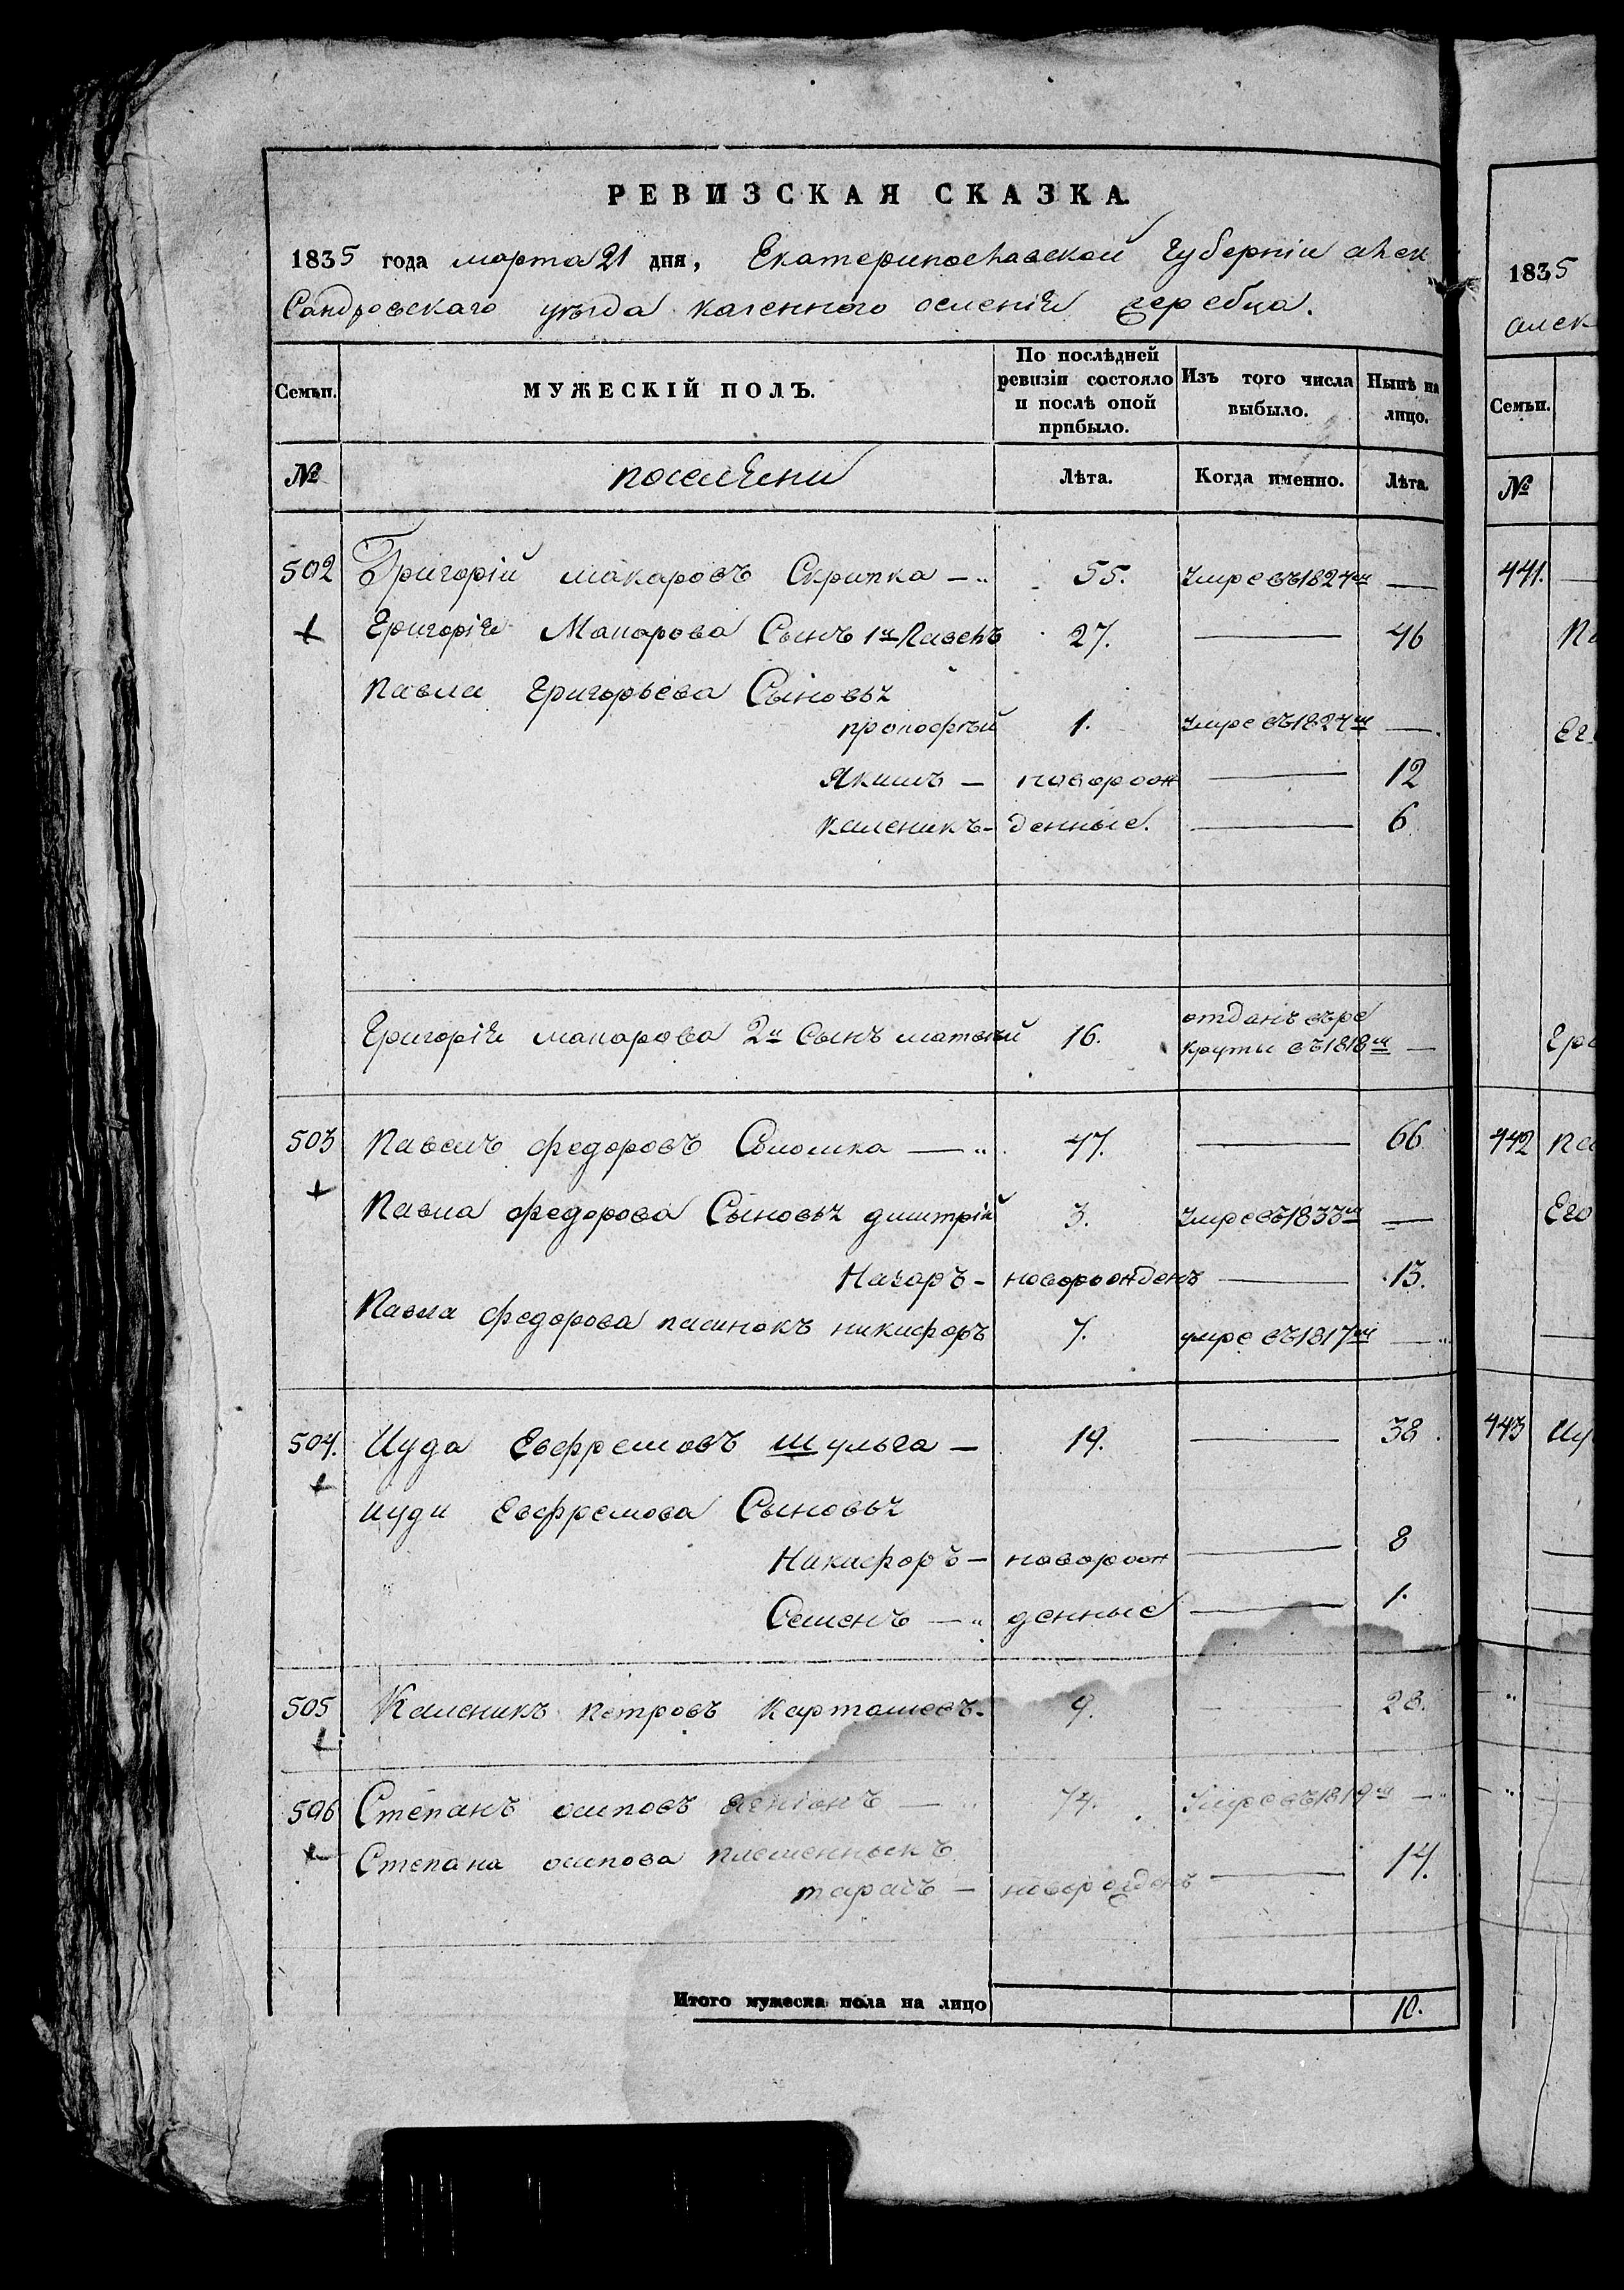 РЕВИЗСКАЯ СКАЗКА.
1835 года марта 21 дня, Екатеринославской Губерніи алек
сандровскаго уезда казенного селенія жеребца.
Семьи. МУЖЕСКІЙ ПОЛЪ. По послѣдней ревизіи состояло и послѣ оной прибыло. Изъ того числа выбыло. Нынѣ на лицо.
№ поселяни Лѣта. Когда именно. Лѣта.
502 Григорій макаровъ Скрипка — 55. Умре въ 1824м —
Григорія Макарова Сынъ 1й Павелъ 27. — 46
Павла Григорьева Сыновья
прокофѣй 1. Умре въ 1824м —
Якимъ — новорож — 12
каленикъ — денные. — 6
Григорія макарова 2й Сынъ матвей 16. отданъ въ ре
круты въ 1818м —
503 Павелъ федоровъ — 47. — 66
Павла федорова Сыновья дмитрій 3. Умре въ 1833м —
Назаръ — новорожденъ — 13.
Павла федорова пасинокъ никифоръ 7. умре въ 1817м —
504. Иуда Евфремовъ шульга — 19. — 38
иуди Евфремова Сыновья
Никифоръ — новорож — 8
Семенъ — денные — 1.
505 Каленикъ петровъ карташевъ — 9. — 28.
506 Степанъ осиповъ — 74. Умре въ 1819м —
Степана осипова племенныкъ
тарасъ — новорожденъ — 14.
Итого мужеска пола на лицо 10.
1835
алек
Семьи.
№
441.
442
Его
443